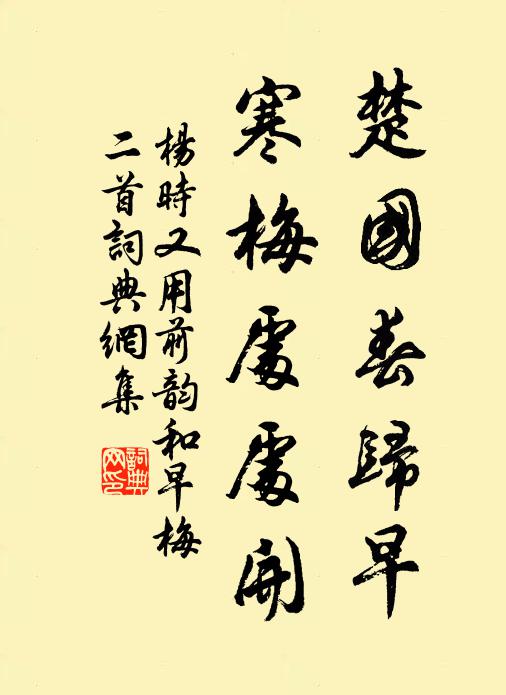 楚國春歸早
寒梅處處開
楊時又用前韵和早梅
二首詞典網集
詞典
网印